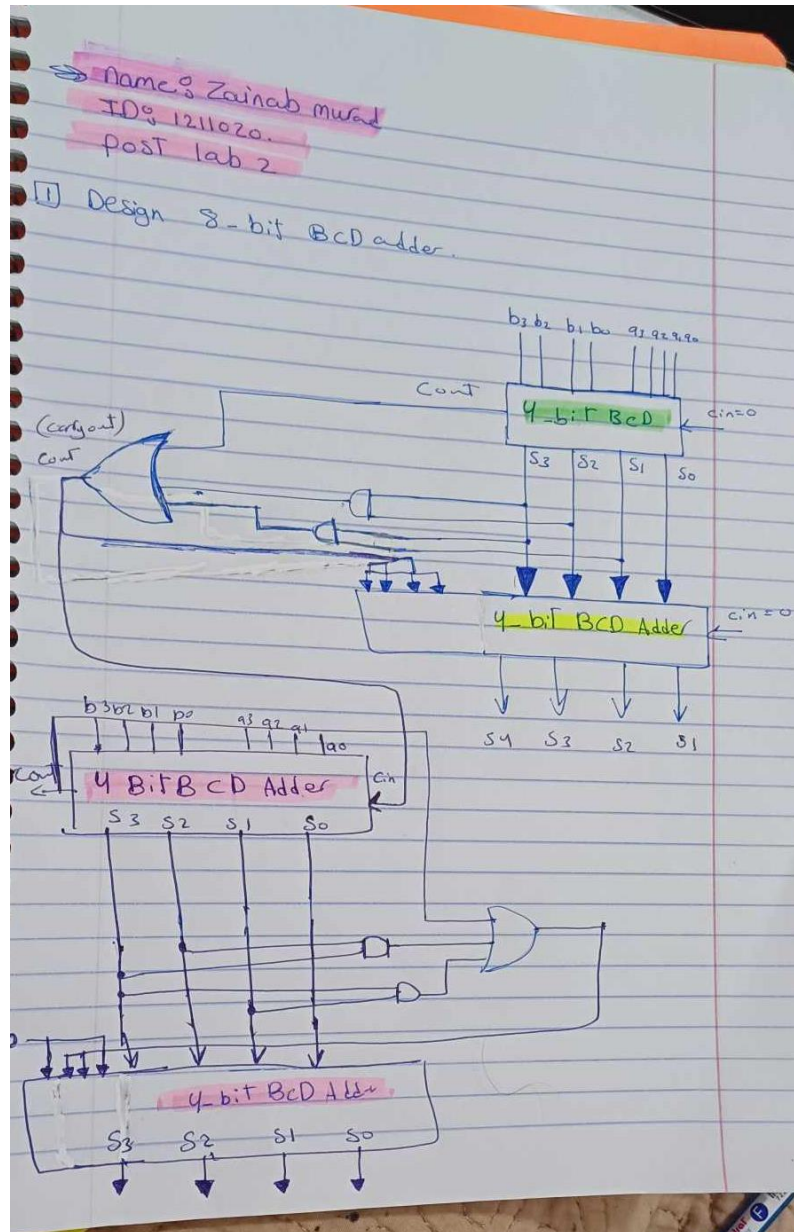 name: Zainab murad
ID: 1211020.
post lab 2
1 Design 8-bit BCD adder.
b3 b2 b1 b0 a3 a2 a1 a0
Cout
4-bit BCD
cin=0
(carryout)
Cout
S3 S2 S1 S0
4-bit BCD Adder
cin=0
S4 S3 S2 S1
b3 b2 b1 b0 a3 a2 a1 a0
Cout
4 Bit BCD Adder
Cin
S3 S2 S1 S0
4-bit BCD Adder
S3 S2 S1 S0